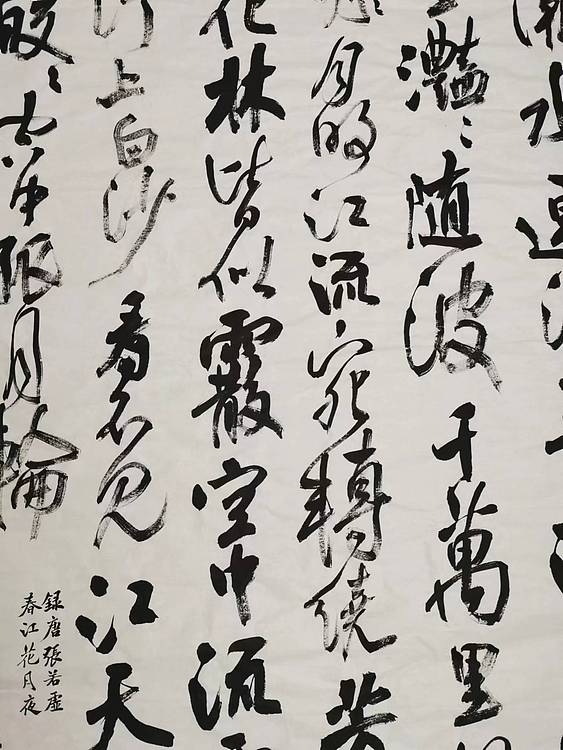 潮水連海平
灩〻随波千萬里
月明江流宛轉繞芳
花林皆似霰空中流
汀上白沙看不見江天
皎〻空中孤月輪
録唐張若虛
春江花月夜